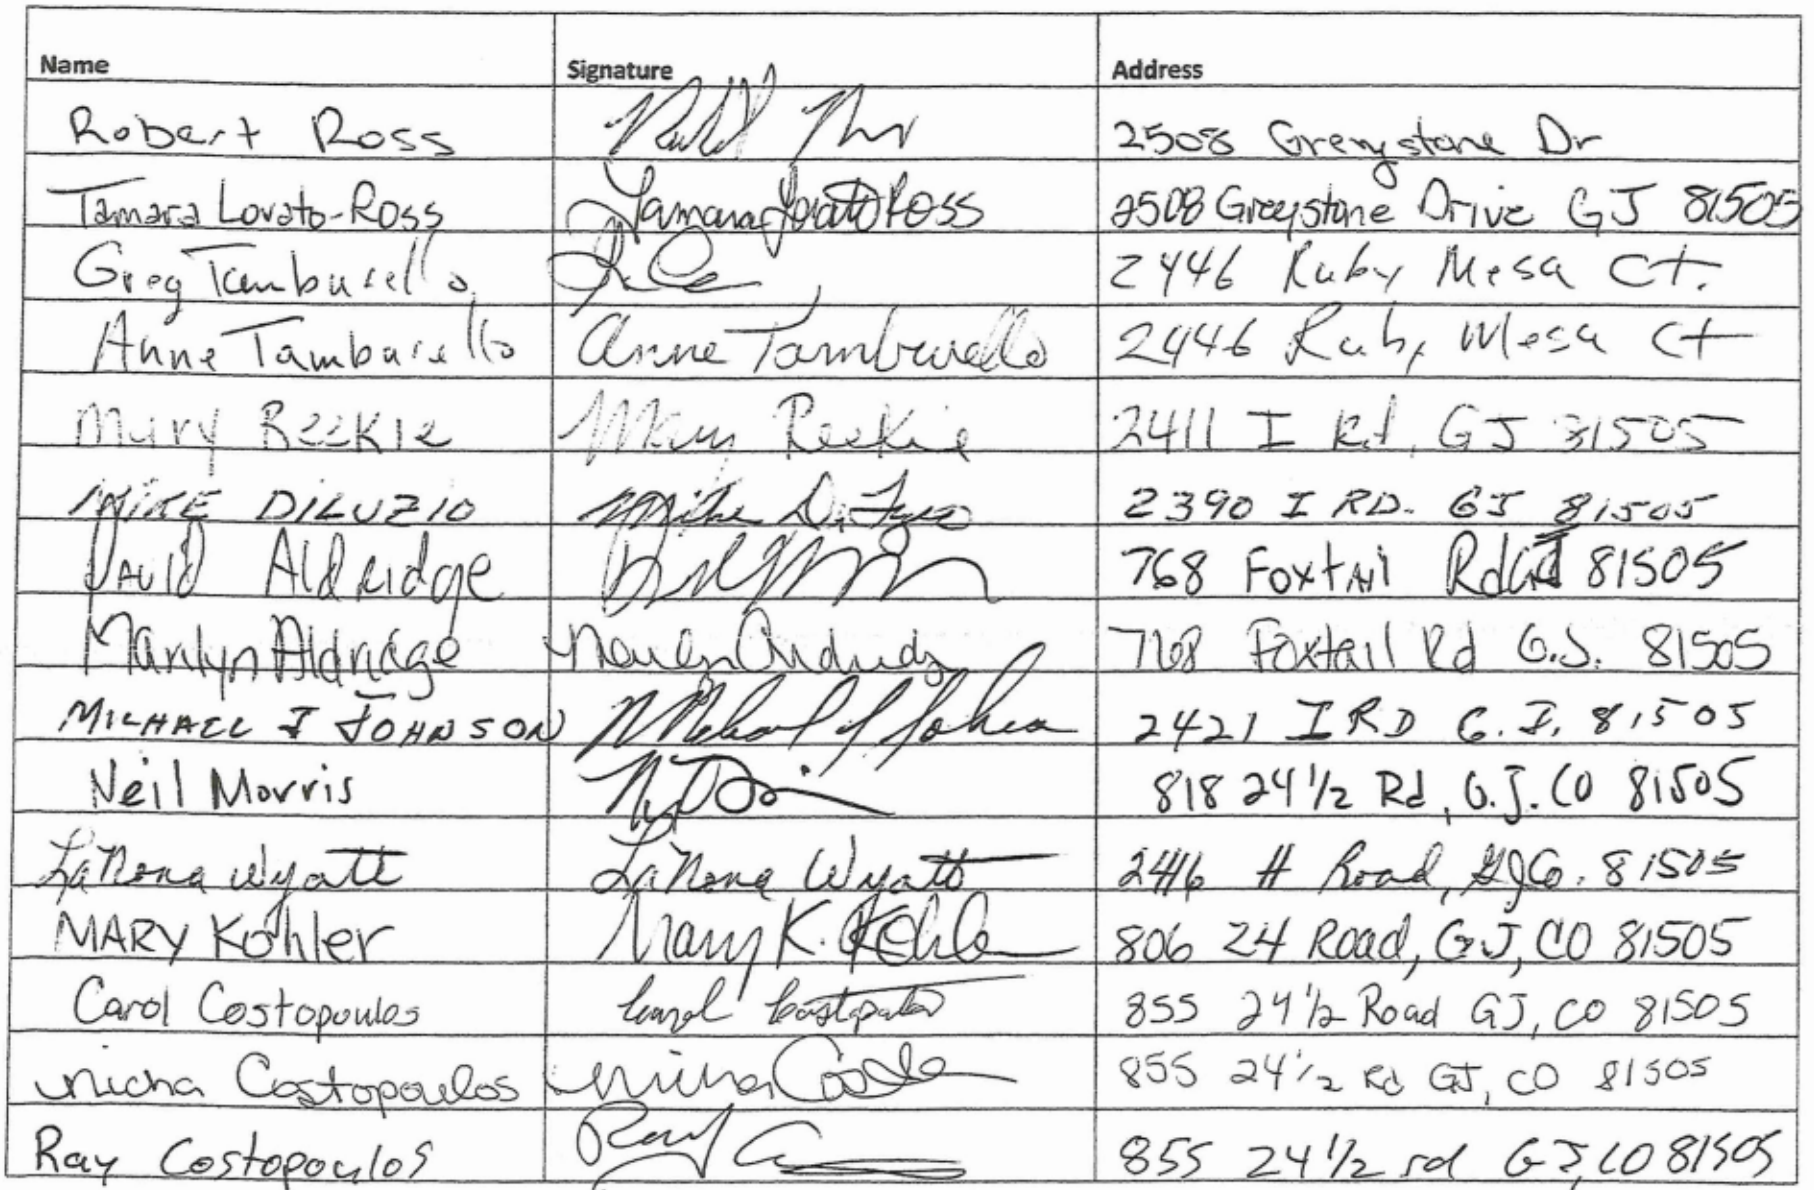 Name Signature Address
Robert Ross 2508 Greystone Dr
Tamara Lovato-Ross Tamara Lovato Ross 2508 Greystone Drive GJ 81505
Greg Tamburello 2446 Ruby Mesa Ct.
Anne Tamburello Anne Tamburello 2446 Ruby Mesa Ct
Mary Reekie Mary Reekie 2411 I Rd, GJ 81505
MIKE DILUZIO Mike 2390 I RD. GJ 81505
DAVID Aldridge 768 Foxtail Rd GJ 81505
Marilyn Aldridge 768 Foxtail Rd G.J. 81505
MICHAEL J JOHNSON Michael J Johnson 2421 I RD G.J. 81505
Neil Morris 818 24 1/2 Rd, G.J. CO 81505
LaNona Wyatt LaNona Wyatt 2416 H Road, GJ Co. 81505
MARY Kohler Mary K. Kohler 806 24 Road, GJ, CO 81505
Carol Costopoulos Carol Costopoulos 855 24 1/2 Road GJ, CO 81505
Costopoulos 855 24 1/2 Rd GJ, CO 81505
Ray Costopoulos Ray 855 24 1/2 rd GJ, CO 81505